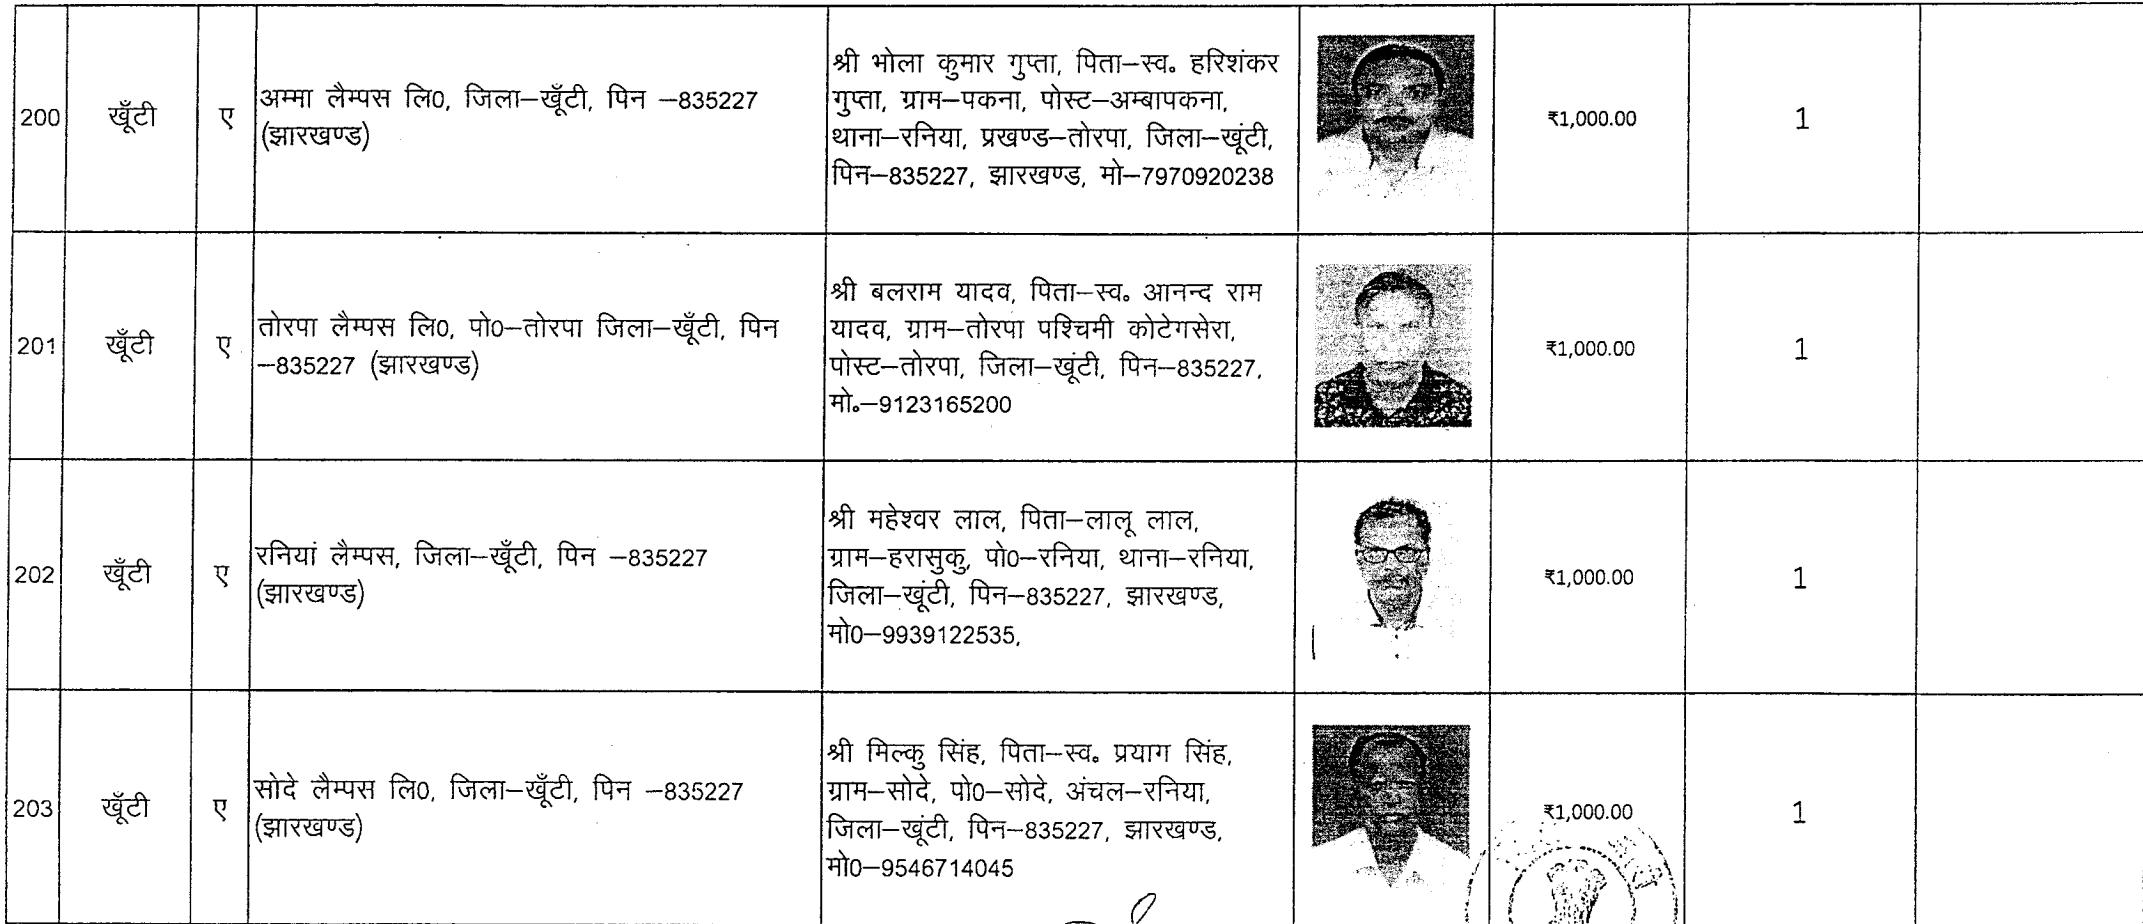 200
खूँटी
ए
अम्मा लैम्पस लि0, जिला–खूँटी, पिन –835227
(झारखण्ड)
श्री भोला कुमार गुप्ता, पिता–स्व० हरिशंकर
गुप्ता, ग्राम–पकना, पोस्ट–अम्बापकना,
थाना–रनिया, प्रखण्ड–तोरपा, जिला–खूंटी,
पिन–835227, झारखण्ड, मो–7970920238
₹1,000.00
1
201
खूँटी
ए
तोरपा लैम्पस लि0, पो0–तोरपा जिला–खूँटी, पिन
–835227 (झारखण्ड)
श्री बलराम यादव, पिता–स्व० आनन्द राम
यादव, ग्राम–तोरपा पश्चिमी कोटेगसेरा,
पोस्ट–तोरपा, जिला–खूंटी, पिन–835227,
मो०–9123165200
₹1,000.00
1
202
खूँटी
ए
रनियां लैम्पस, जिला–खूँटी, पिन –835227
(झारखण्ड)
श्री महेश्वर लाल, पिता–लालू लाल,
ग्राम–हरासुकु, पो0–रनिया, थाना–रनिया,
जिला–खूंटी, पिन–835227, झारखण्ड,
मो0–9939122535,
₹1,000.00
1
203
खूँटी
ए
सोदे लैम्पस लि0, जिला–खूँटी, पिन –835227
(झारखण्ड)
श्री मिल्कु सिंह, पिता–स्व० प्रयाग सिंह,
ग्राम–सोदे, पो0–सोदे, अंचल–रनिया,
जिला–खूंटी, पिन–835227, झारखण्ड,
मो0–9546714045
₹1,000.00
1